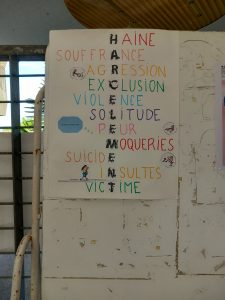 HAINE
SOUFFRANCE
AGRESSION
EXCLUSION
VIOLENCE
SOLITUDE
PEUR
MOQUERIES
SUICIDE
INSULTES
VICTIME
HARCELEMENT